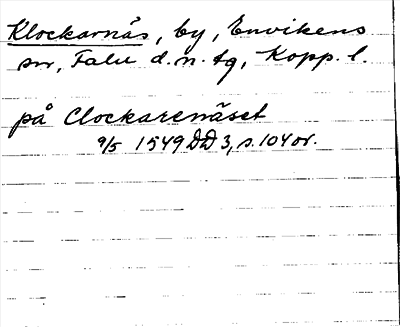 Klockarnäs, by, Envikens
sn, Falu d.n. tg, Kopp. l.
på Clockarenäset
9/5 1549 DD 3, s. 104 or.